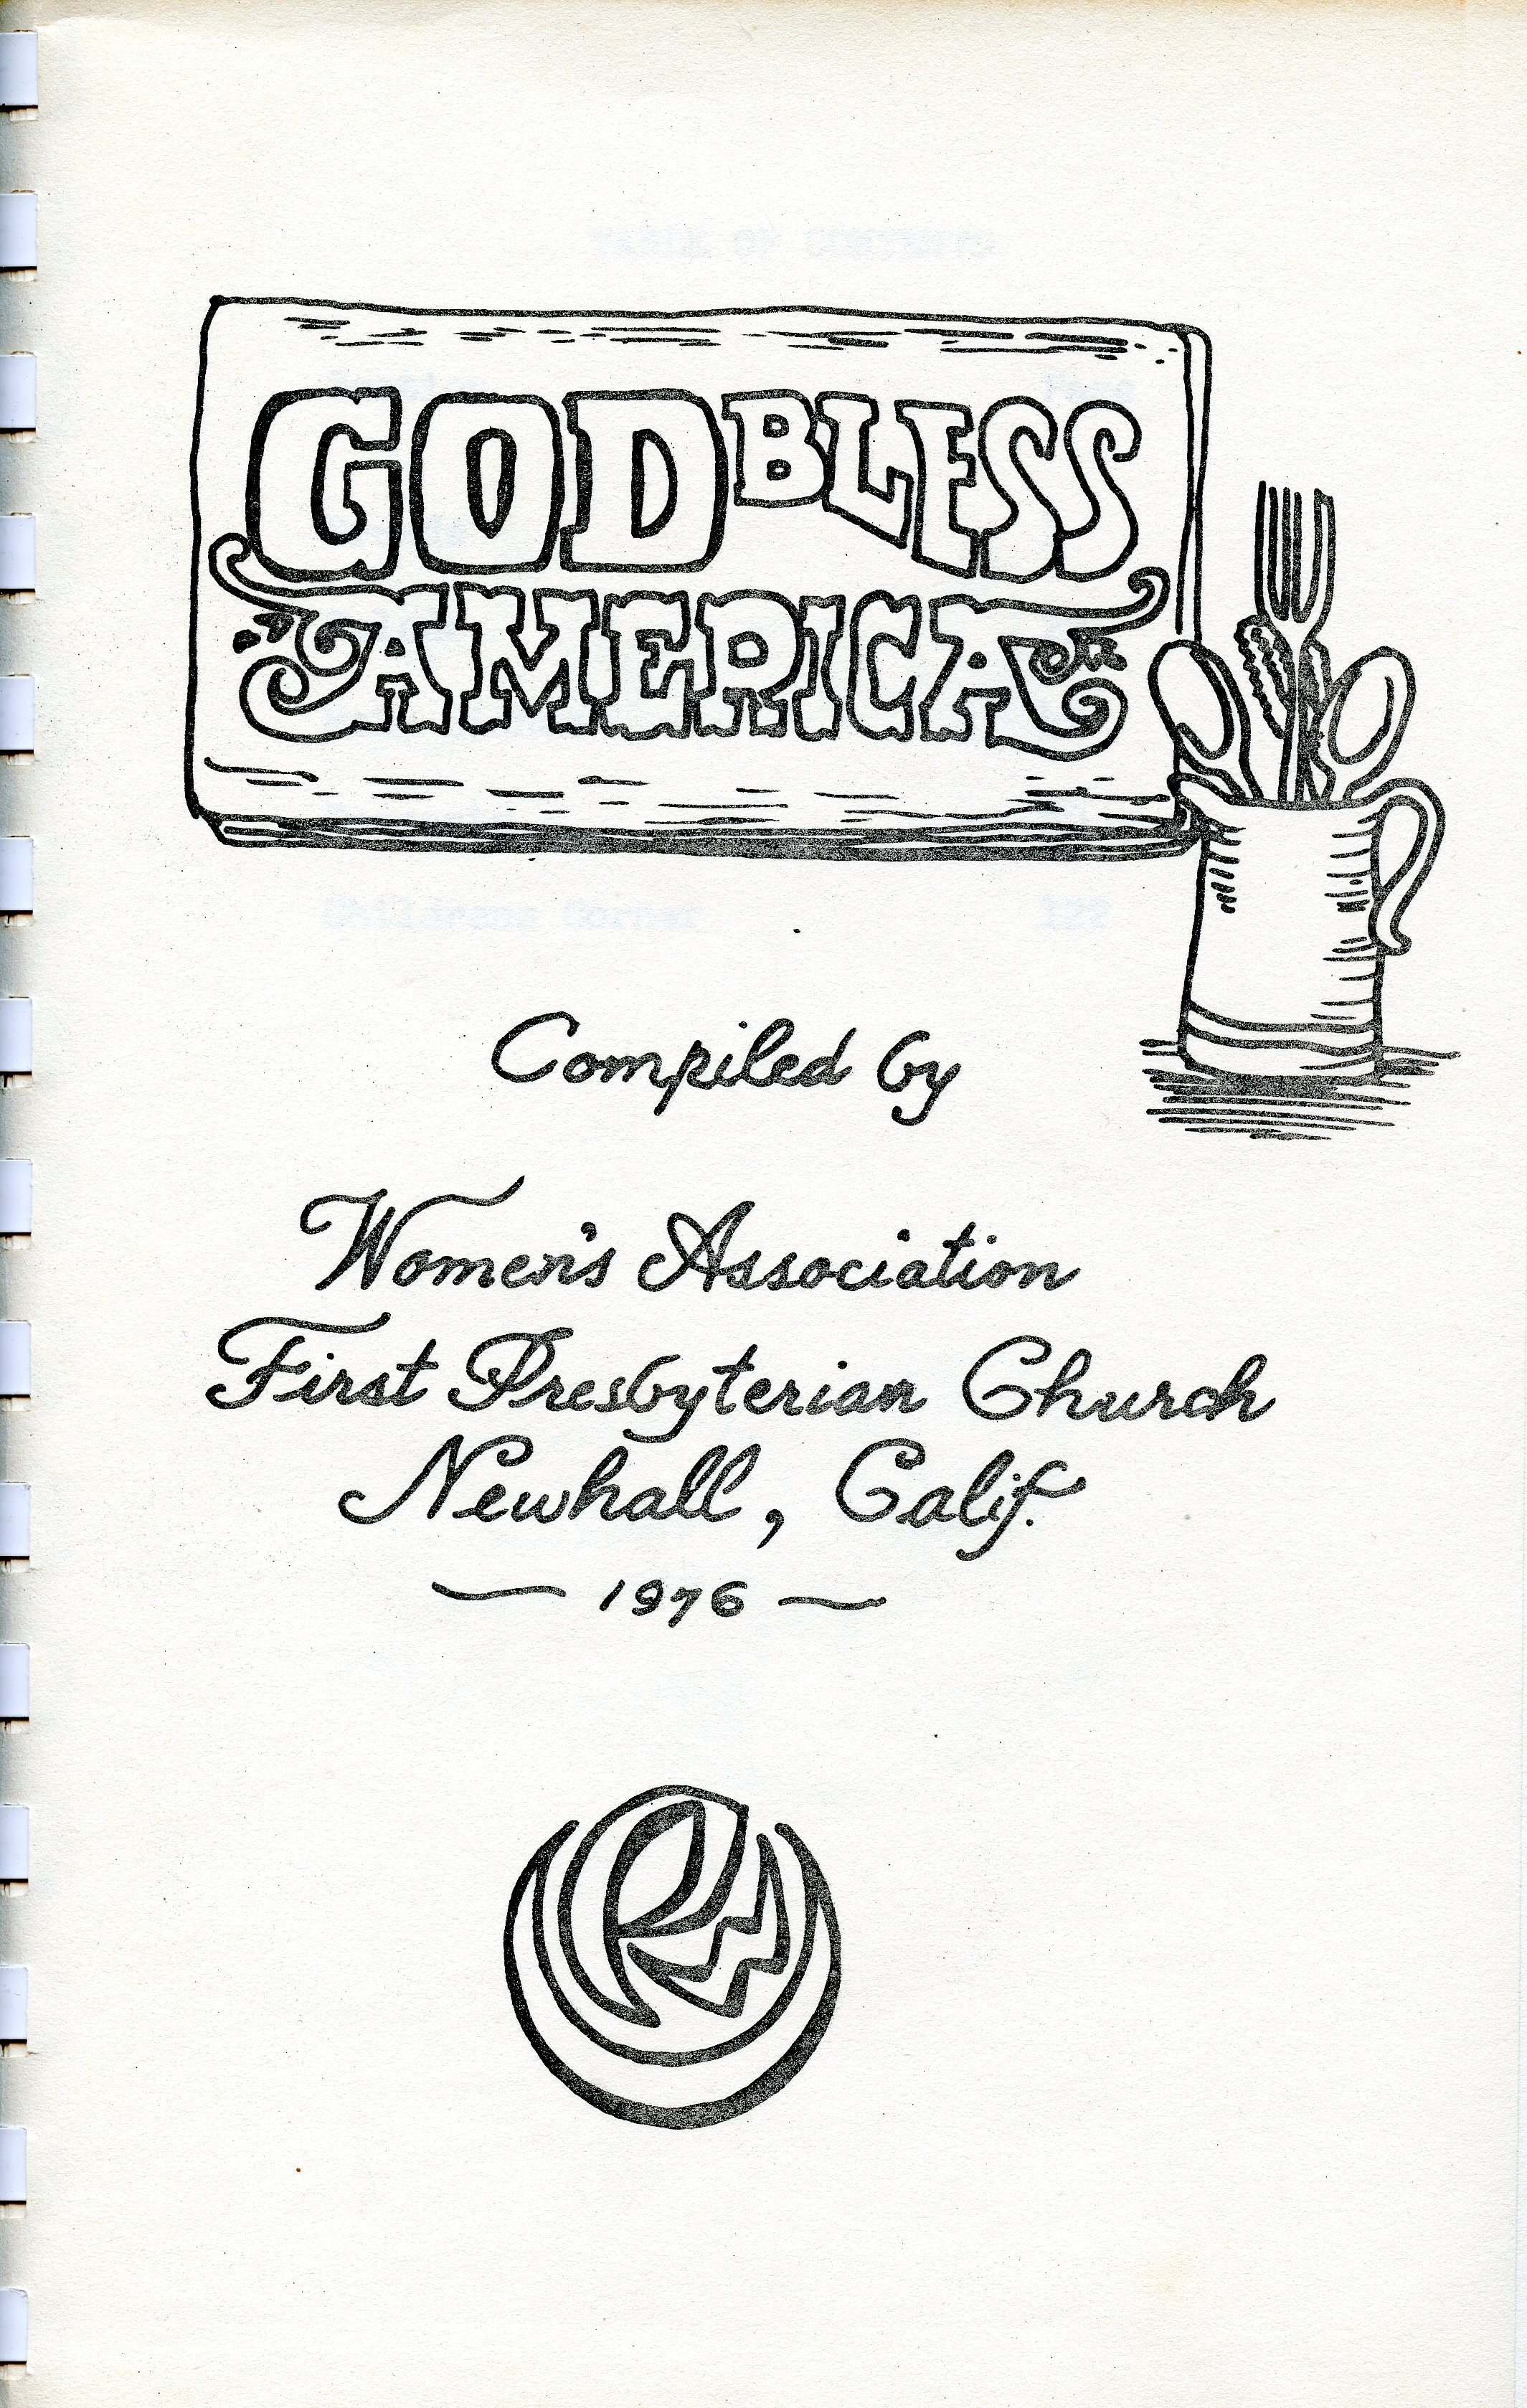 GOD BLESS
AMERICA
Compiled by
Women's Association
First Presbyterian Church
Newhall, Calif.
— 1976 —